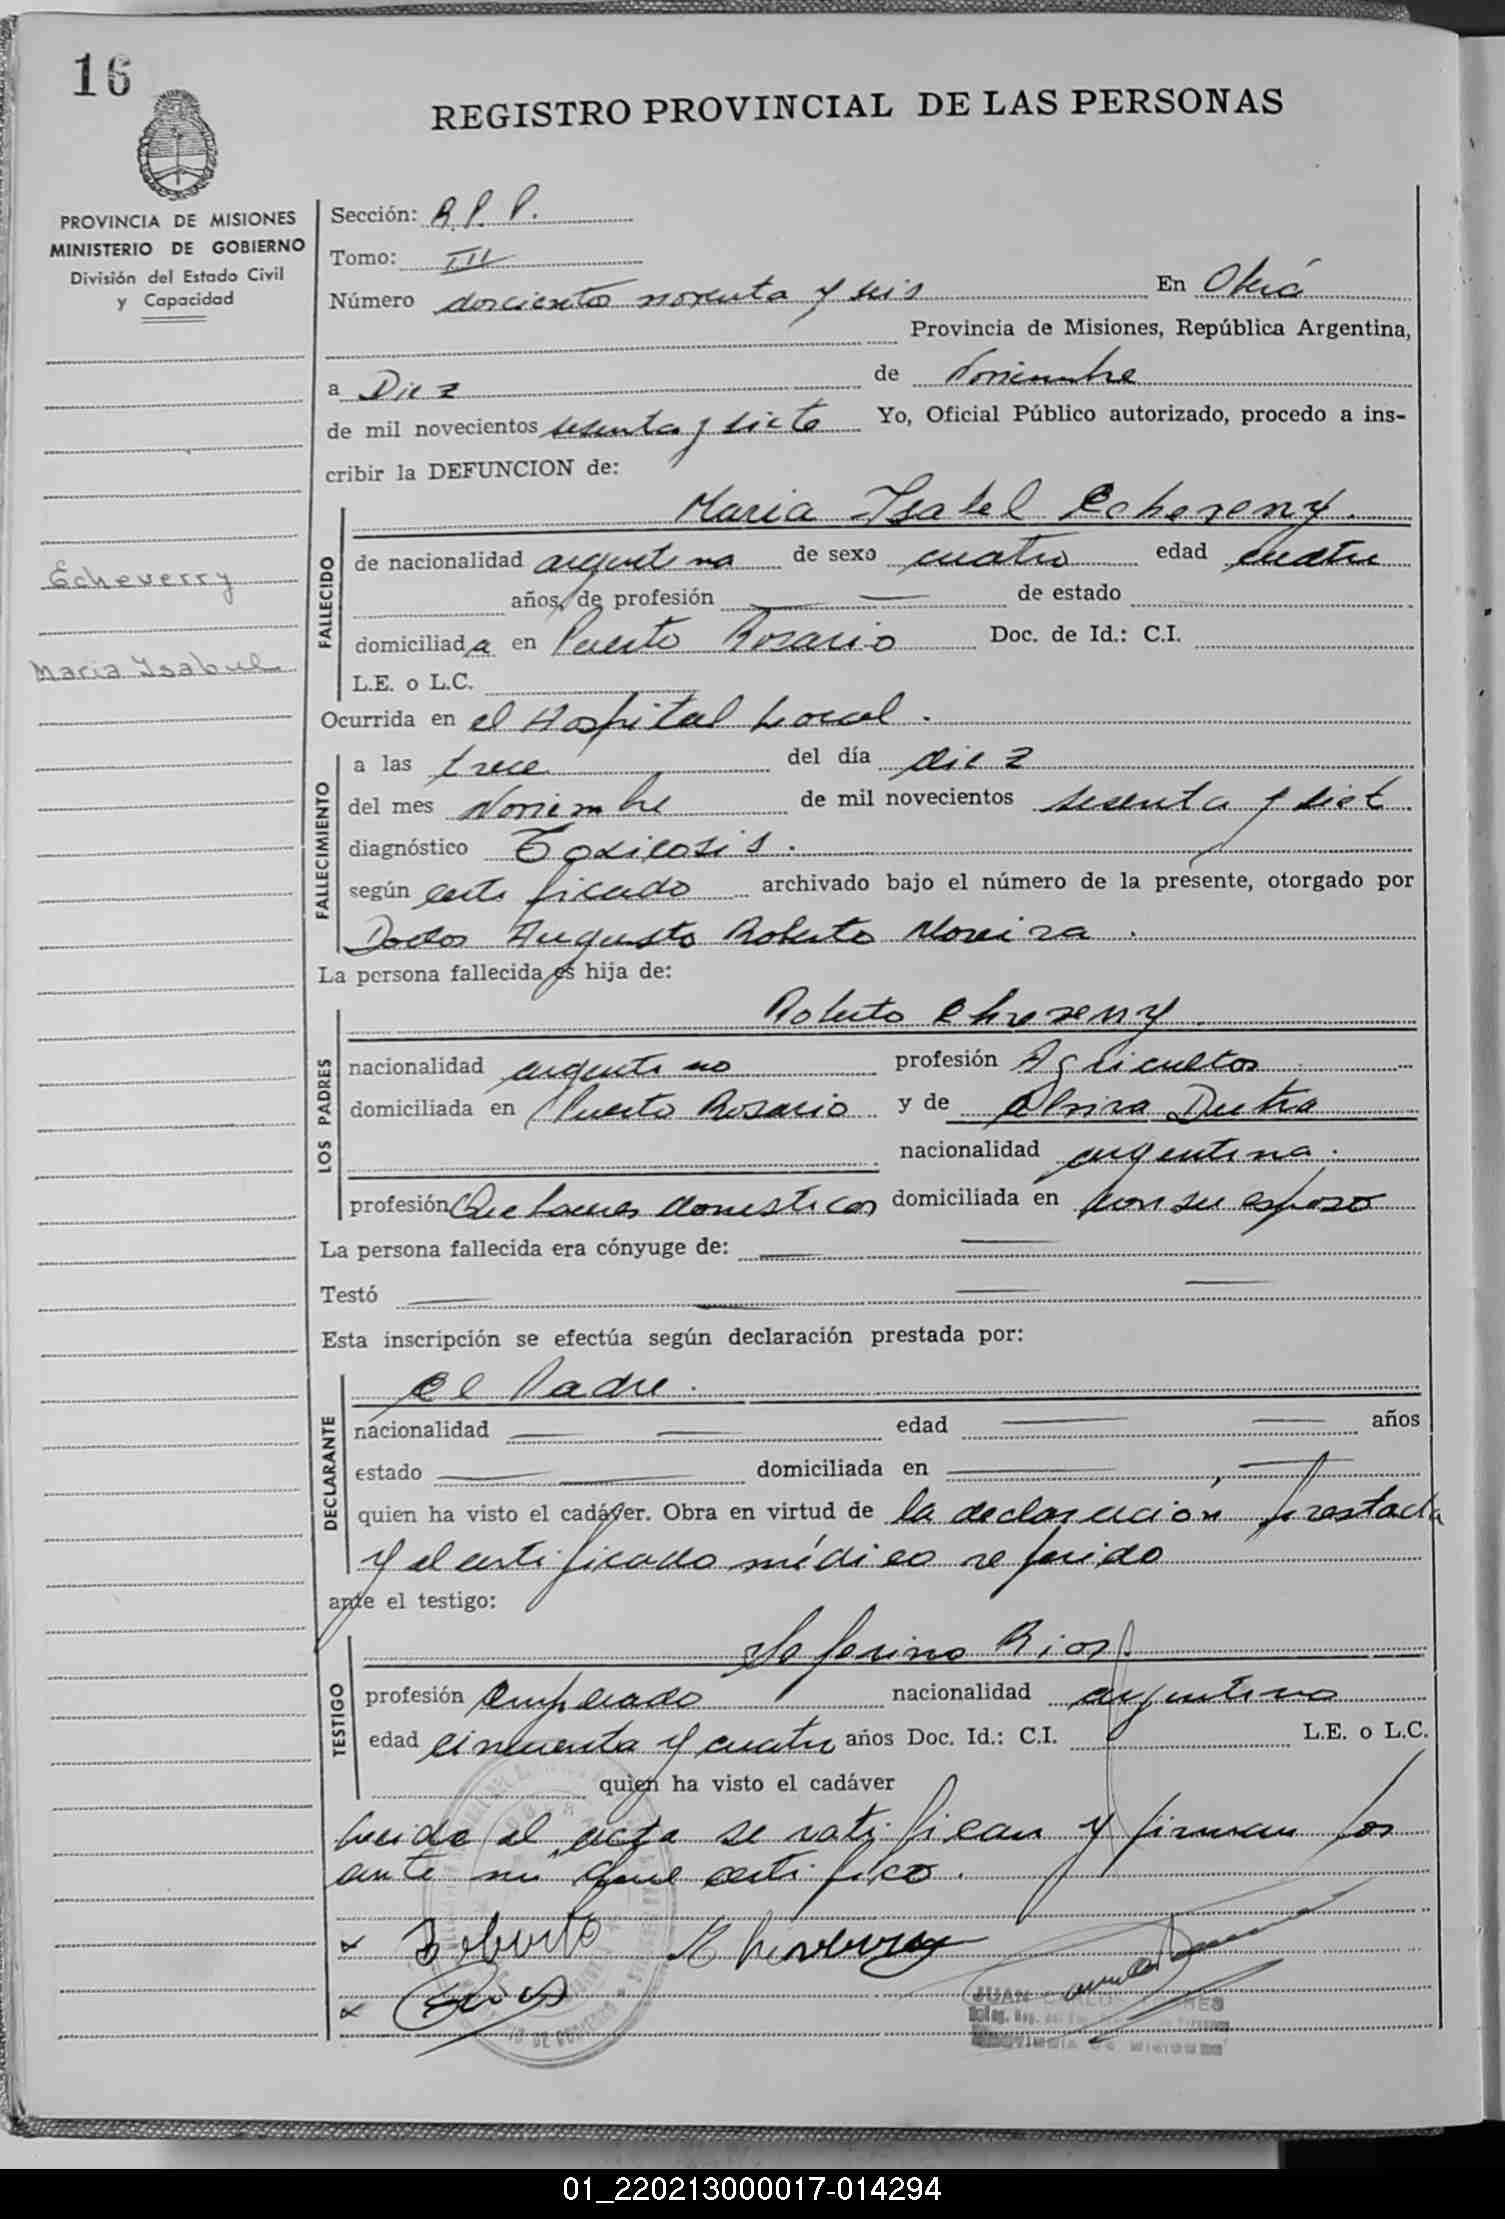 16
REGISTRO PROVINCIAL DE LAS PERSONAS
PROVINCIA DE MISIONES
MINISTERIO DE GOBIERNO
División del Estado Civil
y Capacidad
Echeverry
Maria Isabel
Sección: R. P. P.
Tomo: III
Número doscientos noventa y seis En Oberá
Provincia de Misiones, República Argentina,
a Diez de Noviembre
de mil novecientos sesenta y siete Yo, Oficial Público autorizado, procedo a ins-
cribir la DEFUNCION de:
Maria Isabel Echevery.
FALLECIDO
de nacionalidad argentina de sexo cuatro edad cuatro
años, de profesión — — de estado
domiciliada en Puerto Rosario Doc. de Id.: C.I.
L.E. o L.C.
Ocurrida en el Hospital Local.
FALLECIMIENTO
a las trece del día diez
del mes Noviembre de mil novecientos sesenta y siet
diagnóstico Toxicosis.
según certificado archivado bajo el número de la presente, otorgado por
Doctor Augusto Roberto Moreira.
La persona fallecida es hija de:
LOS PADRES
Roberto
nacionalidad argentino profesión Agricultor
domiciliada en Puerto Rosario y de Dutra
nacionalidad argentina.
profesión Quehaceres domesticos domiciliada en con su esposo
La persona fallecida era cónyuge de: — —
Testó — — — —
Esta inscripción se efectúa según declaración prestada por:
DECLARANTE
El Padre.
nacionalidad — — edad — — años
estado — — domiciliada en — —
quien ha visto el cadáver. Obra en virtud de la declaración prestada
y el certificado médico referido
ante el testigo:
TESTIGO
Seferino Rios
profesión Empleado nacionalidad argentino
edad cincuenta y cuatro años Doc. Id.: C.I. L.E. o L.C.
quien ha visto el cadáver
Leida el acta se ratifican y firman por
ante mi que certifico.
x Roberto
x Rios
JUAN CARLOS
01_220213000017-014294